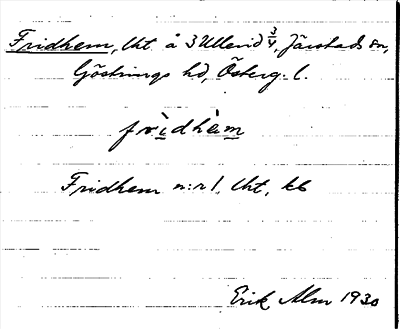 Fridhem, lht å 3 Ullevid 3/4, Järstads sn,
Göstrings hd, Österg. l.
frìdhèm
Fridhem n:r 1, lht, kb
Erik Alm 1930